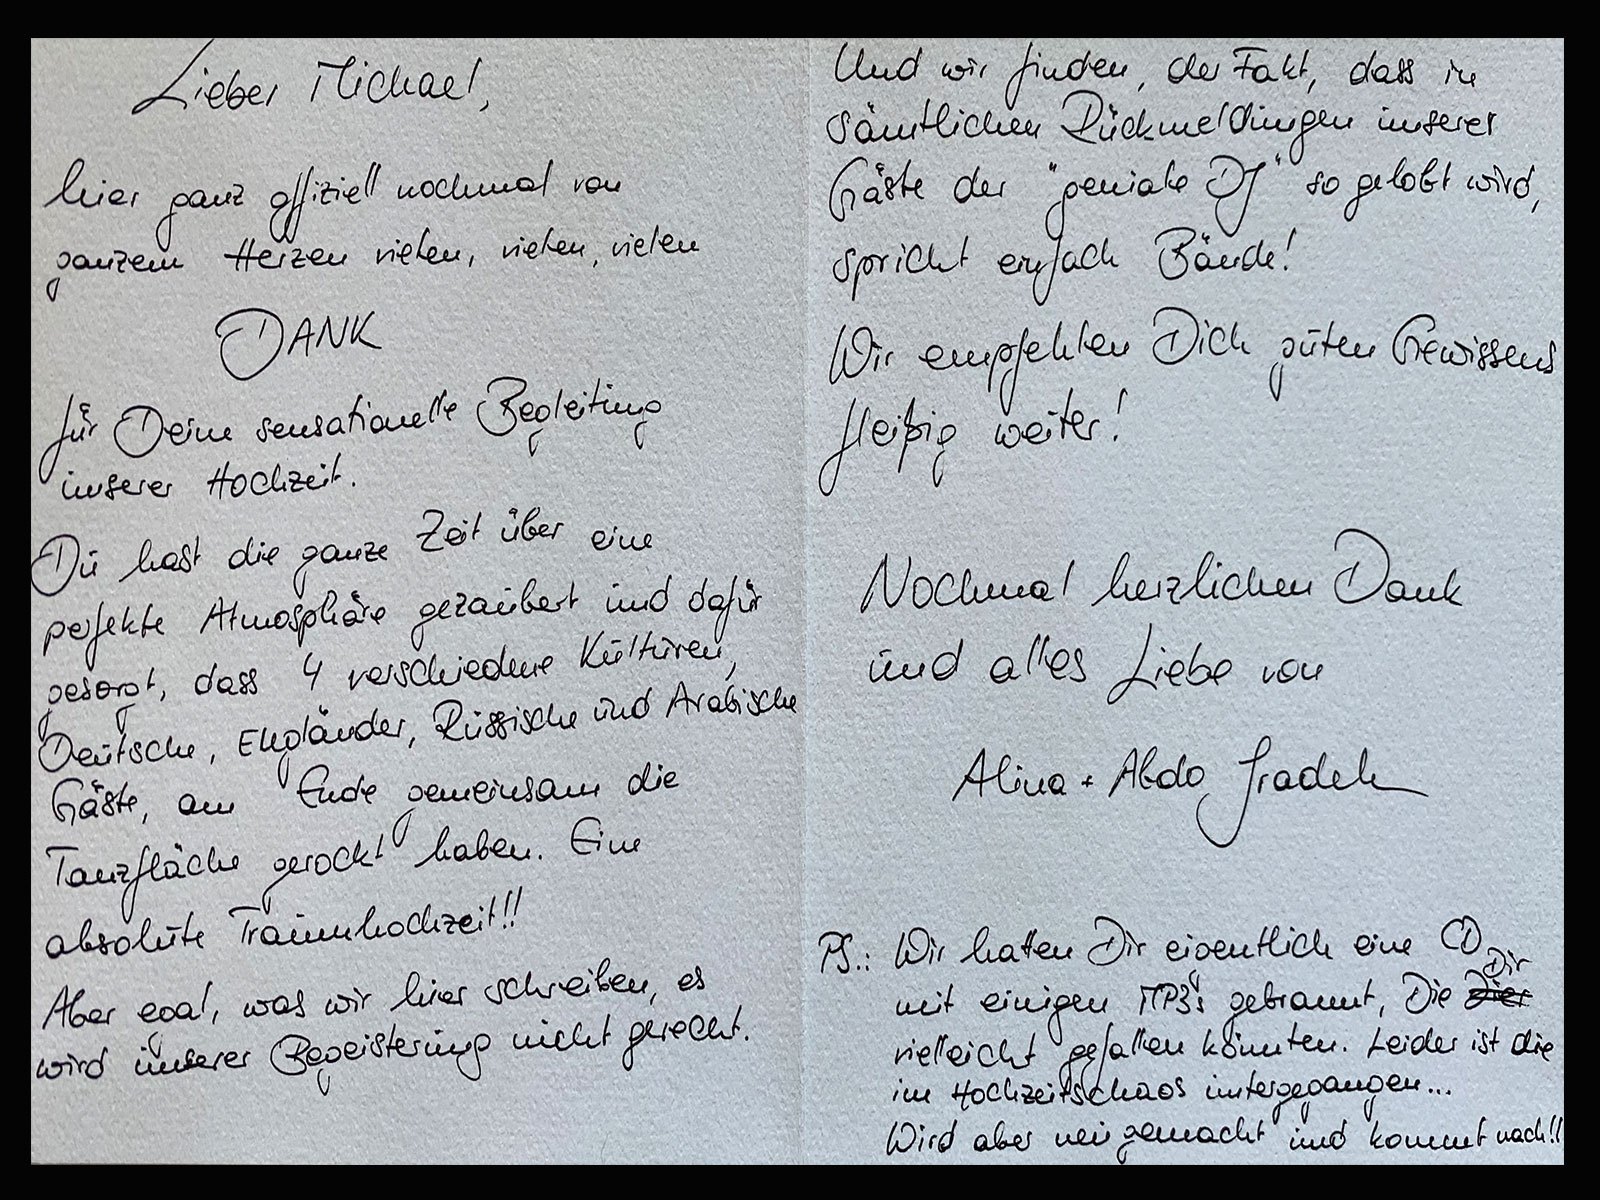 Lieber Michael,
hier ganz offiziell nochmal von
ganzem Herzen vielen, vielen, vielen
DANK
für Deine sensationelle Begleitung
unserer Hochzeit.
Du hast die ganze Zeit über eine
perfekte Atmosphäre gezaubert und dafür
gesorgt, dass 4 verschiedene Kulturen,
Deutsche, Engländer, Russische und Arabische
Gäste, am Ende gemeinsam die
Tanzfläche gerockt haben. Eine
absolute Traumhochzeit!!
Aber egal, was wir hier schreiben, es
wird unserer Begeisterung nicht gerecht.
Und wir finden, der Fakt, dass in
sämtlichen Rückmeldungen unserer
Gäste der "geniale DJ" so gelobt wird,
spricht einfach Bände!
Wir empfehlen Dich guten Gewissens
fleißig weiter!
Nochmal herzlichen Dank
und alles Liebe von
Alina + Abdo
PS.: Wir hatten Dir eigentlich eine CD
mit einigen MP3's gebrannt, Die Dir
vielleicht gefallen könnten. Leider ist die
im Hochzeitschaos untergegangen...
Wird aber neu gemacht und kommt nach!!